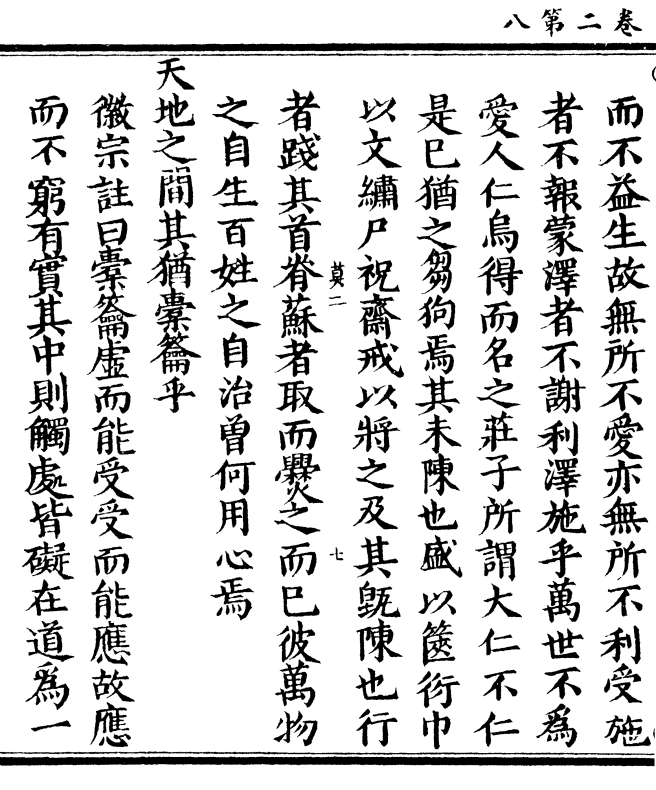 卷二第八
而不益生故無所不愛亦無所不利受施
者不報蒙澤者不謝利澤施乎萬世不為
愛人仁烏得而名之莊子所謂大仁不仁
是巳猶之芻狗焉其未陳也盛以篋衍巾
以文繡尸祝齋戒以將之及其旣陳也行
莫二
七
者踐其首脊蘇者取而爨之而巳彼萬物
之自生百姓之自治曾何用心焉
天地之間其猶橐籥乎
徽宗註曰橐籥虛而能受受而能應故應
而不窮有實其中則觸處皆礙在道爲一